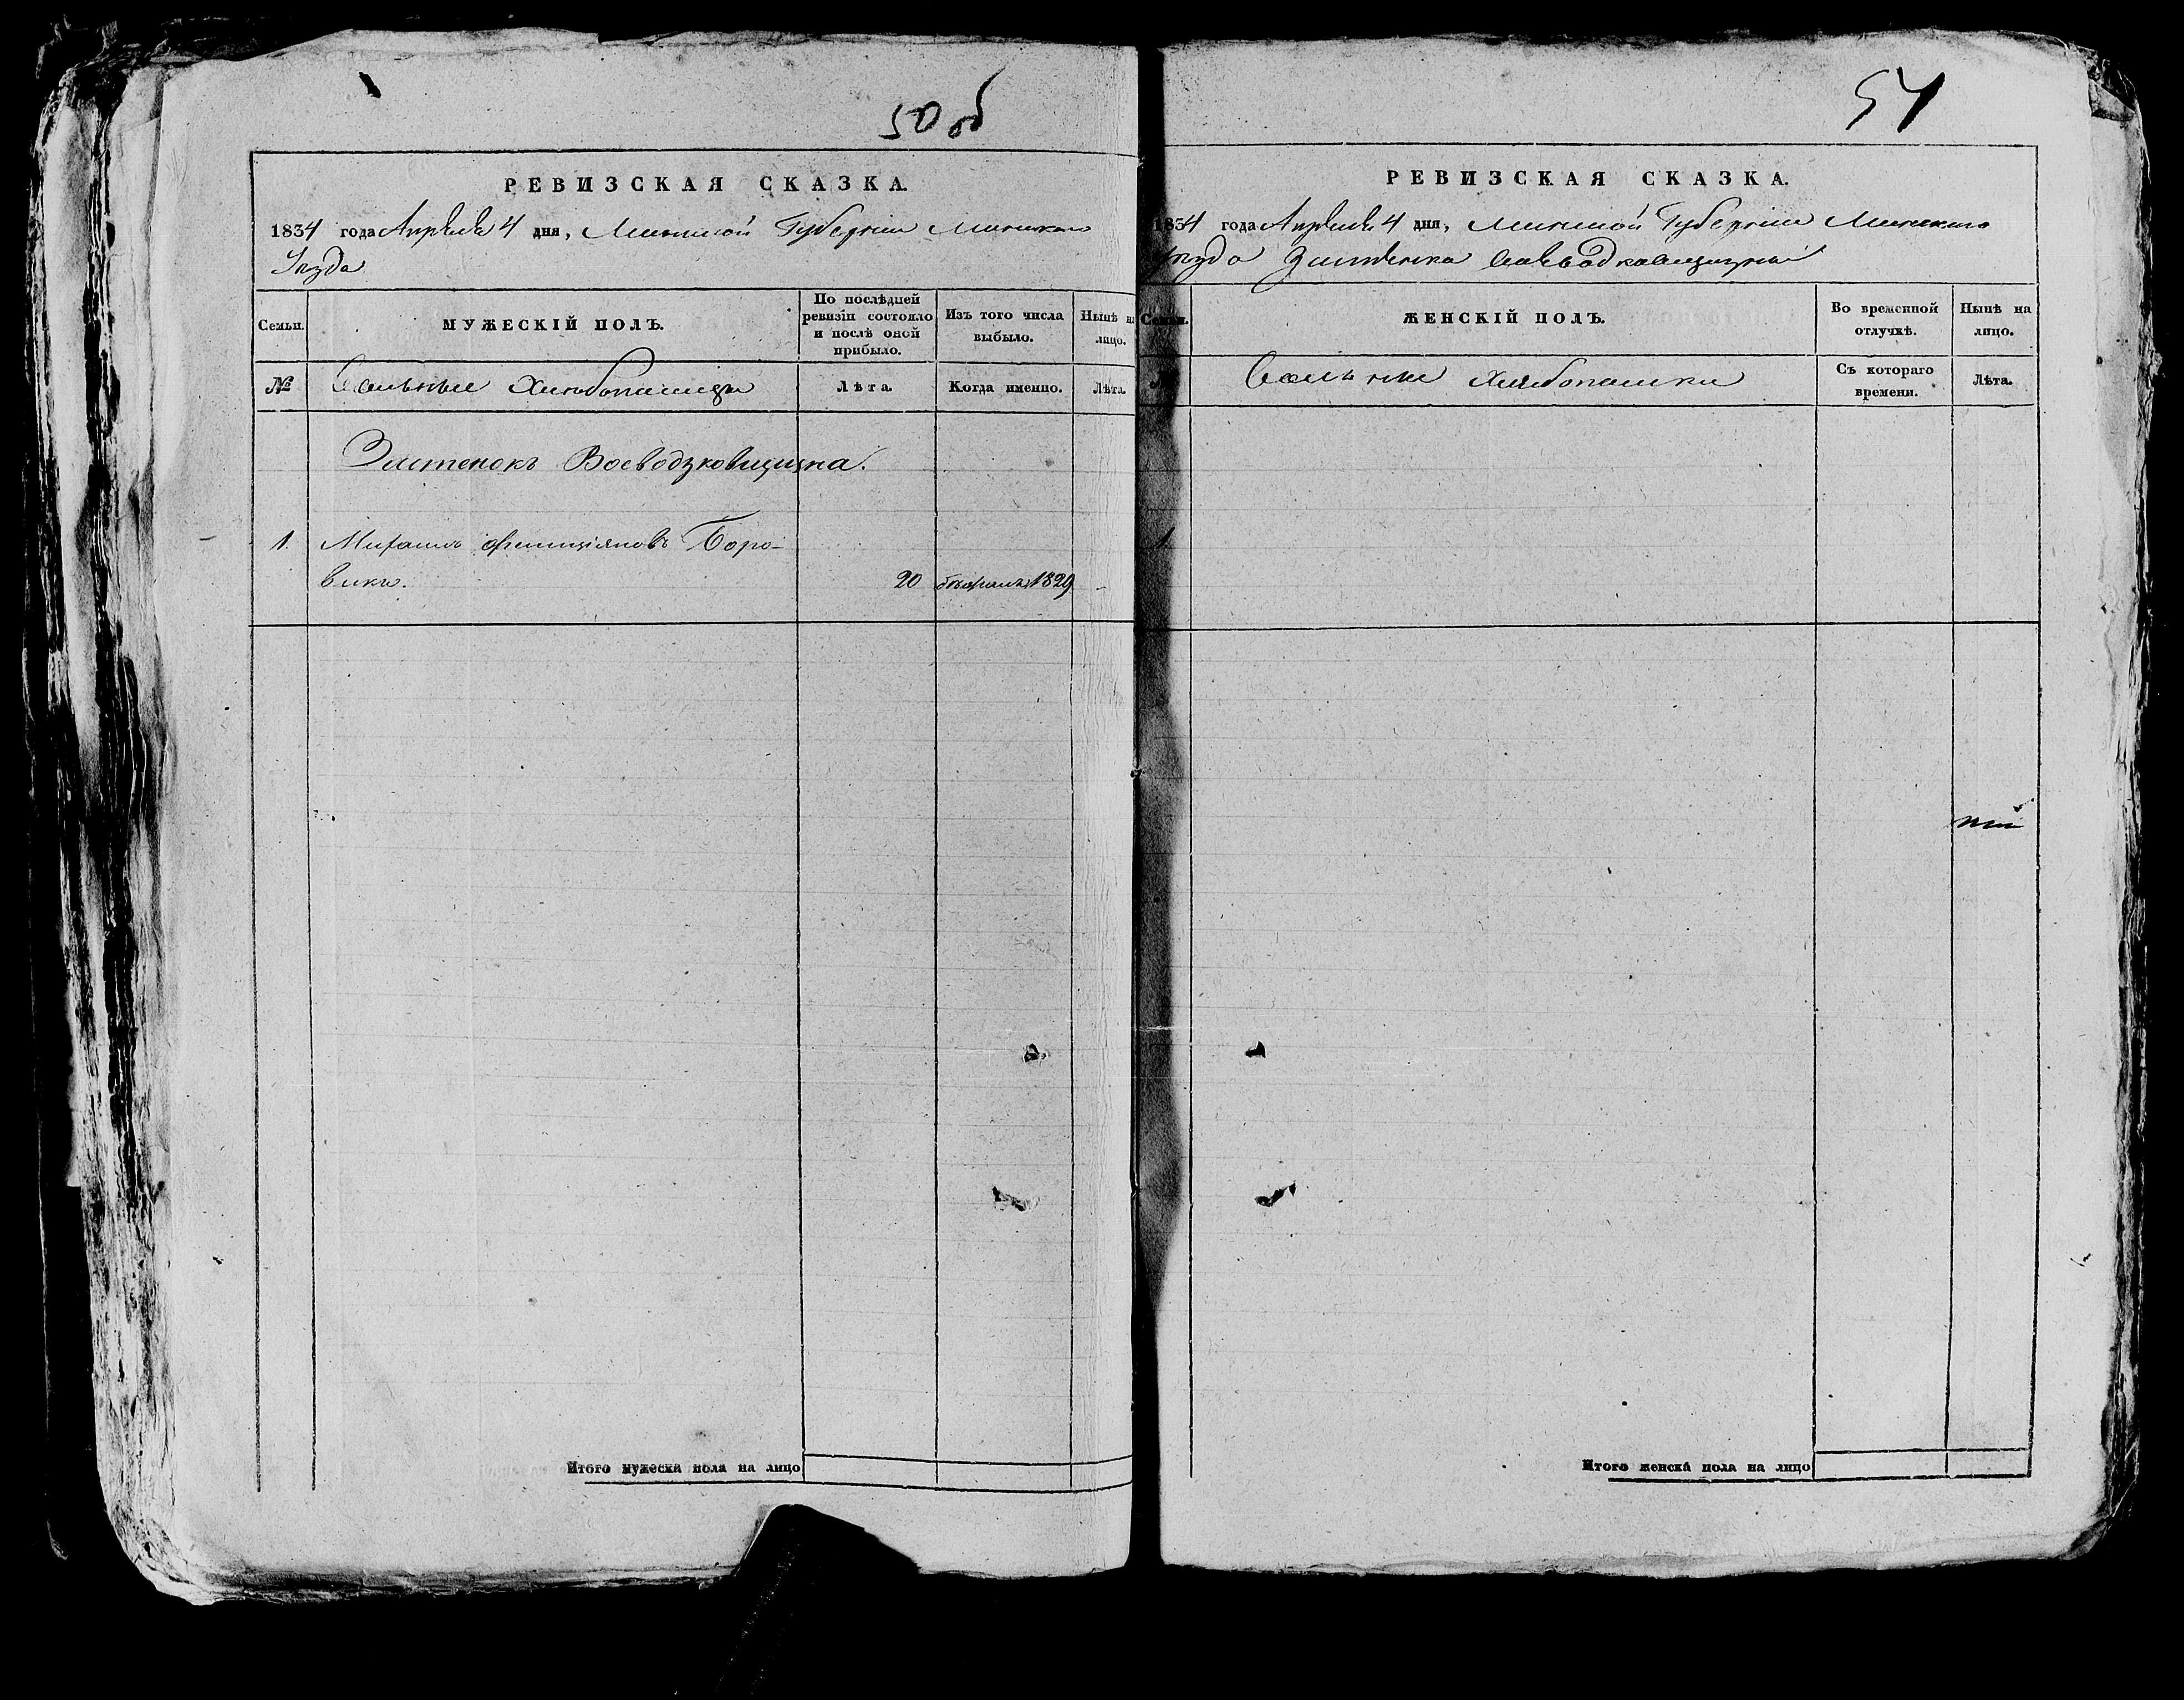 50 об
РЕВИЗСКАЯ СКАЗКА.
1834 года Апрѣля 4 дня, Минской Губерніи Минскаго
Уѣзда
Семьи.
МУЖЕСКІЙ ПОЛЪ.
По послѣдней ревизіи состояло и послѣ оной прибыло.
Изъ того числа выбыло.
Нынѣ на лицо.
№
Вольные Хлѣбопашцы
Лѣта.
Когда именно.
Лѣта.
Застенокъ Воеводзковщизна.
1. Михаилъ Боро-
викъ. 20 1829 -
Итого мужеска пола на лицо
51
РЕВИЗСКАЯ СКАЗКА.
1834 года Апрѣля 4 дня, Минской Губерніи Минскаго
Уѣзда Застѣнка
Семьи.
ЖЕНСКІЙ ПОЛЪ.
Во временной отлучкѣ.
Нынѣ на лицо.
№
Вольные Хлѣбопашки
Съ котораго времени.
Лѣта.
1
Итого женска пола на лицо